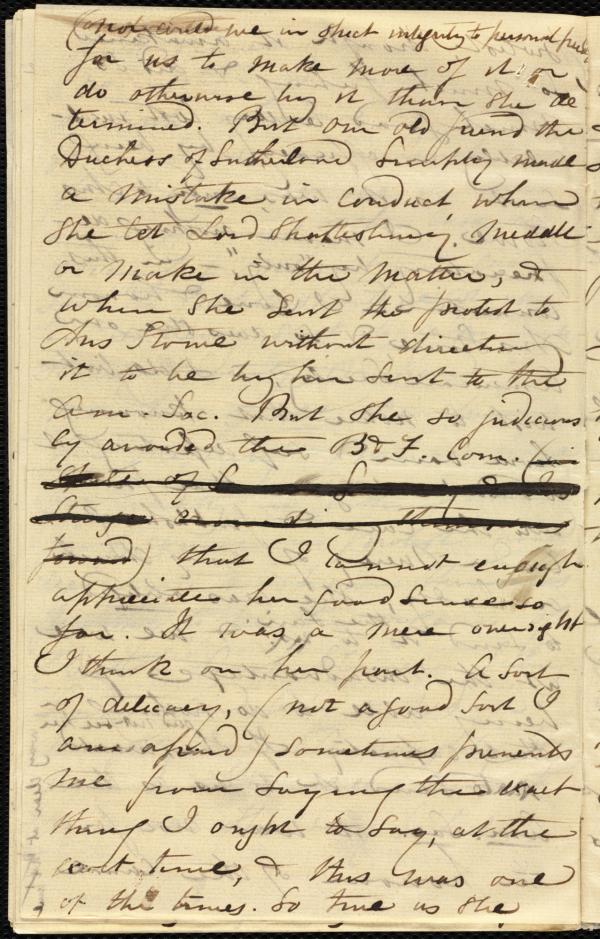 (nor could we in strict integrity to personal
for us to make more of it or
do otherwise by it than she de
termined. But our old friend the
Duchess of Sutherland simply made
a mistake in conduct when
she let Lord Shaftesbury meddle
or make in the matter, &
when she sent the protest to
Mrs Stowe without directing
it to be by her sent to the
Am. Soc. But she so judicious
ly avoided the B & F. Com. (in
spite of
Sturge
toward) that I cannot enough
appreciate her good sense so
far. It was a mere oversight
I think on her part. A sort
of delicacy, (not a good sort I
am afraid) sometimes prevents
me from saying the exact
thing I ought to say, at the
exact time, & this was one
of the times. So true as she